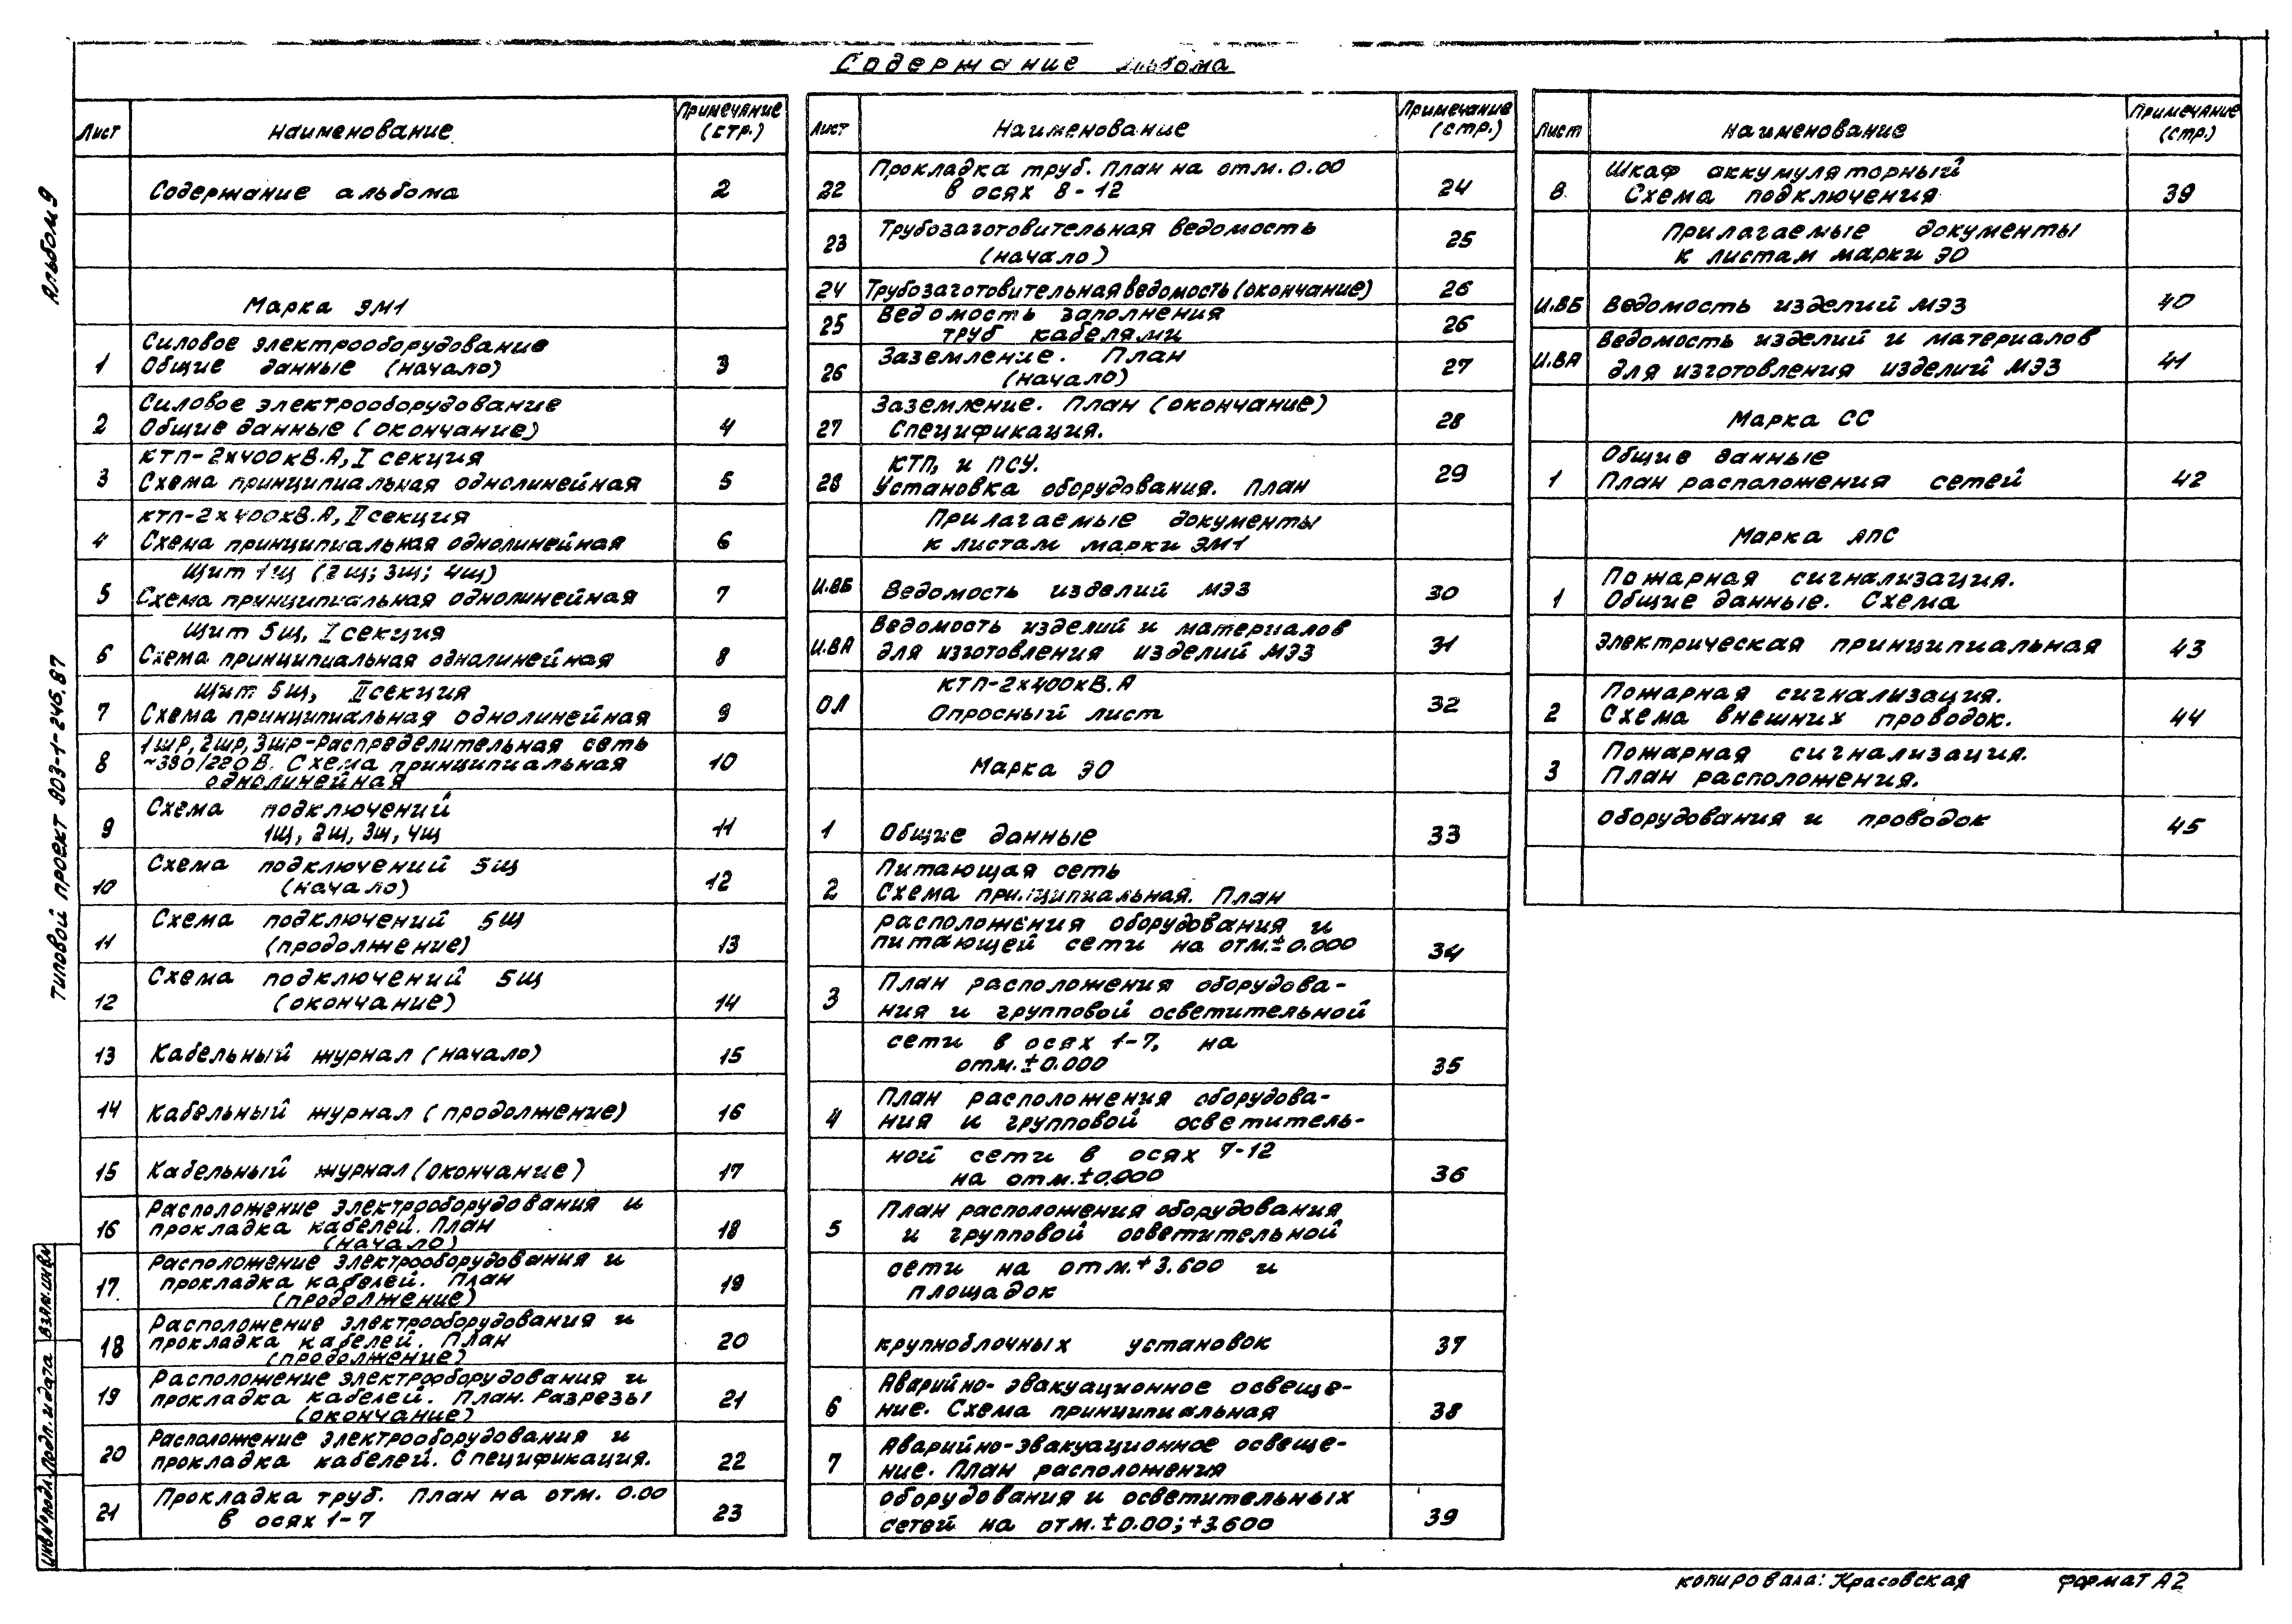 Содержание альбома
Альбом 9
Типовой проект 903-1-246.87
Лист Наименование Примечание (стр.)
Содержание альбома 2
Марка ЭМ1
Силовое электрооборудование
1 Общие данные (начало) 3
Силовое электрооборудование
2 Общие данные (окончание) 4
КТП-2х400кВ.А, I секция
3 Схема принципиальная однолинейная 5
КТП-2х400кВ.А, II секция
4 Схема принципиальная однолинейная 6
Щит 1щ (2щ; 3щ; 4щ)
5 Схема принципиальная однолинейная 7
Щит 5щ, I секция
6 Схема принципиальная однолинейная 8
Щит 5щ, II секция
7 Схема принципиальная однолинейная 9
1шр, 2шр, 3шр-Распределительная сеть
8 ~380/220В. Схема принципиальная 10
однолинейная
Схема подключений
9 1щ, 2щ, 3щ, 4щ 11
Схема подключений 5щ
10 (начало) 12
Схема подключений 5щ
11 (продолжение) 13
Схема подключений 5щ
12 (окончание) 14
13 Кабельный журнал (начало) 15
14 Кабельный журнал (продолжение) 16
15 Кабельный журнал (окончание) 17
Расположение электрооборудования и
16 прокладка кабелей. План 18
(начало)
Расположение электрооборудования и
17 прокладка кабелей. План 19
(продолжение)
Расположение электрооборудования и
18 прокладка кабелей. План 20
(продолжение)
Расположение электрооборудования и
19 прокладка кабелей. План. Разрезы 21
(окончание)
Расположение электрооборудования и
20 прокладка кабелей. Спецификация. 22
Прокладка труб. План на отм. 0.00
21 в осях 1-7 23
Лист Наименование Примечание (стр.)
Прокладка труб. План на отм. 0.00
22 в осях 8-12 24
Трубозаготовительная ведомость
23 (начало) 25
24 Трубозаготовительная ведомость (окончание) 26
Ведомость заполнения
25 труб кабелями 26
Заземление. План
26 (начало) 27
Заземление. План (окончание)
27 Спецификация. 28
КТП, и ПСУ.
28 Установка оборудования. План 29
Прилагаемые документы
к листам марки ЭМ1
И.ВБ Ведомость изделий МЭЗ 30
Ведомость изделий и материалов
И.ВА для изготовления изделий МЭЗ 31
КТП-2х400кВ.А
ОЛ Опросный лист 32
Марка ЭО
1 Общие данные 33
Питающая сеть
2 Схема принципиальная. План
расположения оборудования и
питающей сети на отм.±0.000 34
План расположения оборудова-
3 ния и групповой осветительной
сети в осях 1-7, на
отм.±0.000 35
План расположения оборудова-
4 ния и групповой осветитель-
ной сети в осях 7-12
на отм.±0.000 36
План расположения оборудования
5 и групповой осветительной
сети на отм.+3.600 и
площадок
крупноблочных установок 37
Аварийно-эвакуационное освеще-
6 ние. Схема принципиальная 38
Аварийно-эвакуационное освеще-
7 ние. План расположения
оборудования и осветительных
сетей на отм.±0.00;+3.600 39
Лист Наименование Примечание (стр.)
Шкаф аккумуляторный
8 Схема подключения 39
Прилагаемые документы
к листам марки ЭО
И.ВБ Ведомость изделий МЭЗ 40
Ведомость изделий и материалов
И.ВА для изготовления изделий МЭЗ 41
Марка СС
Общие данные
1 План расположения сетей 42
Марка АПС
Пожарная сигнализация.
1 Общие данные. Схема
электрическая принципиальная 43
Пожарная сигнализация.
2 Схема внешних проводок. 44
Пожарная сигнализация.
3 План расположения.
оборудования и проводок 45
Инв.№подл. Подп. и дата Взам.инв.№
Копировала: Красовская Формат А2